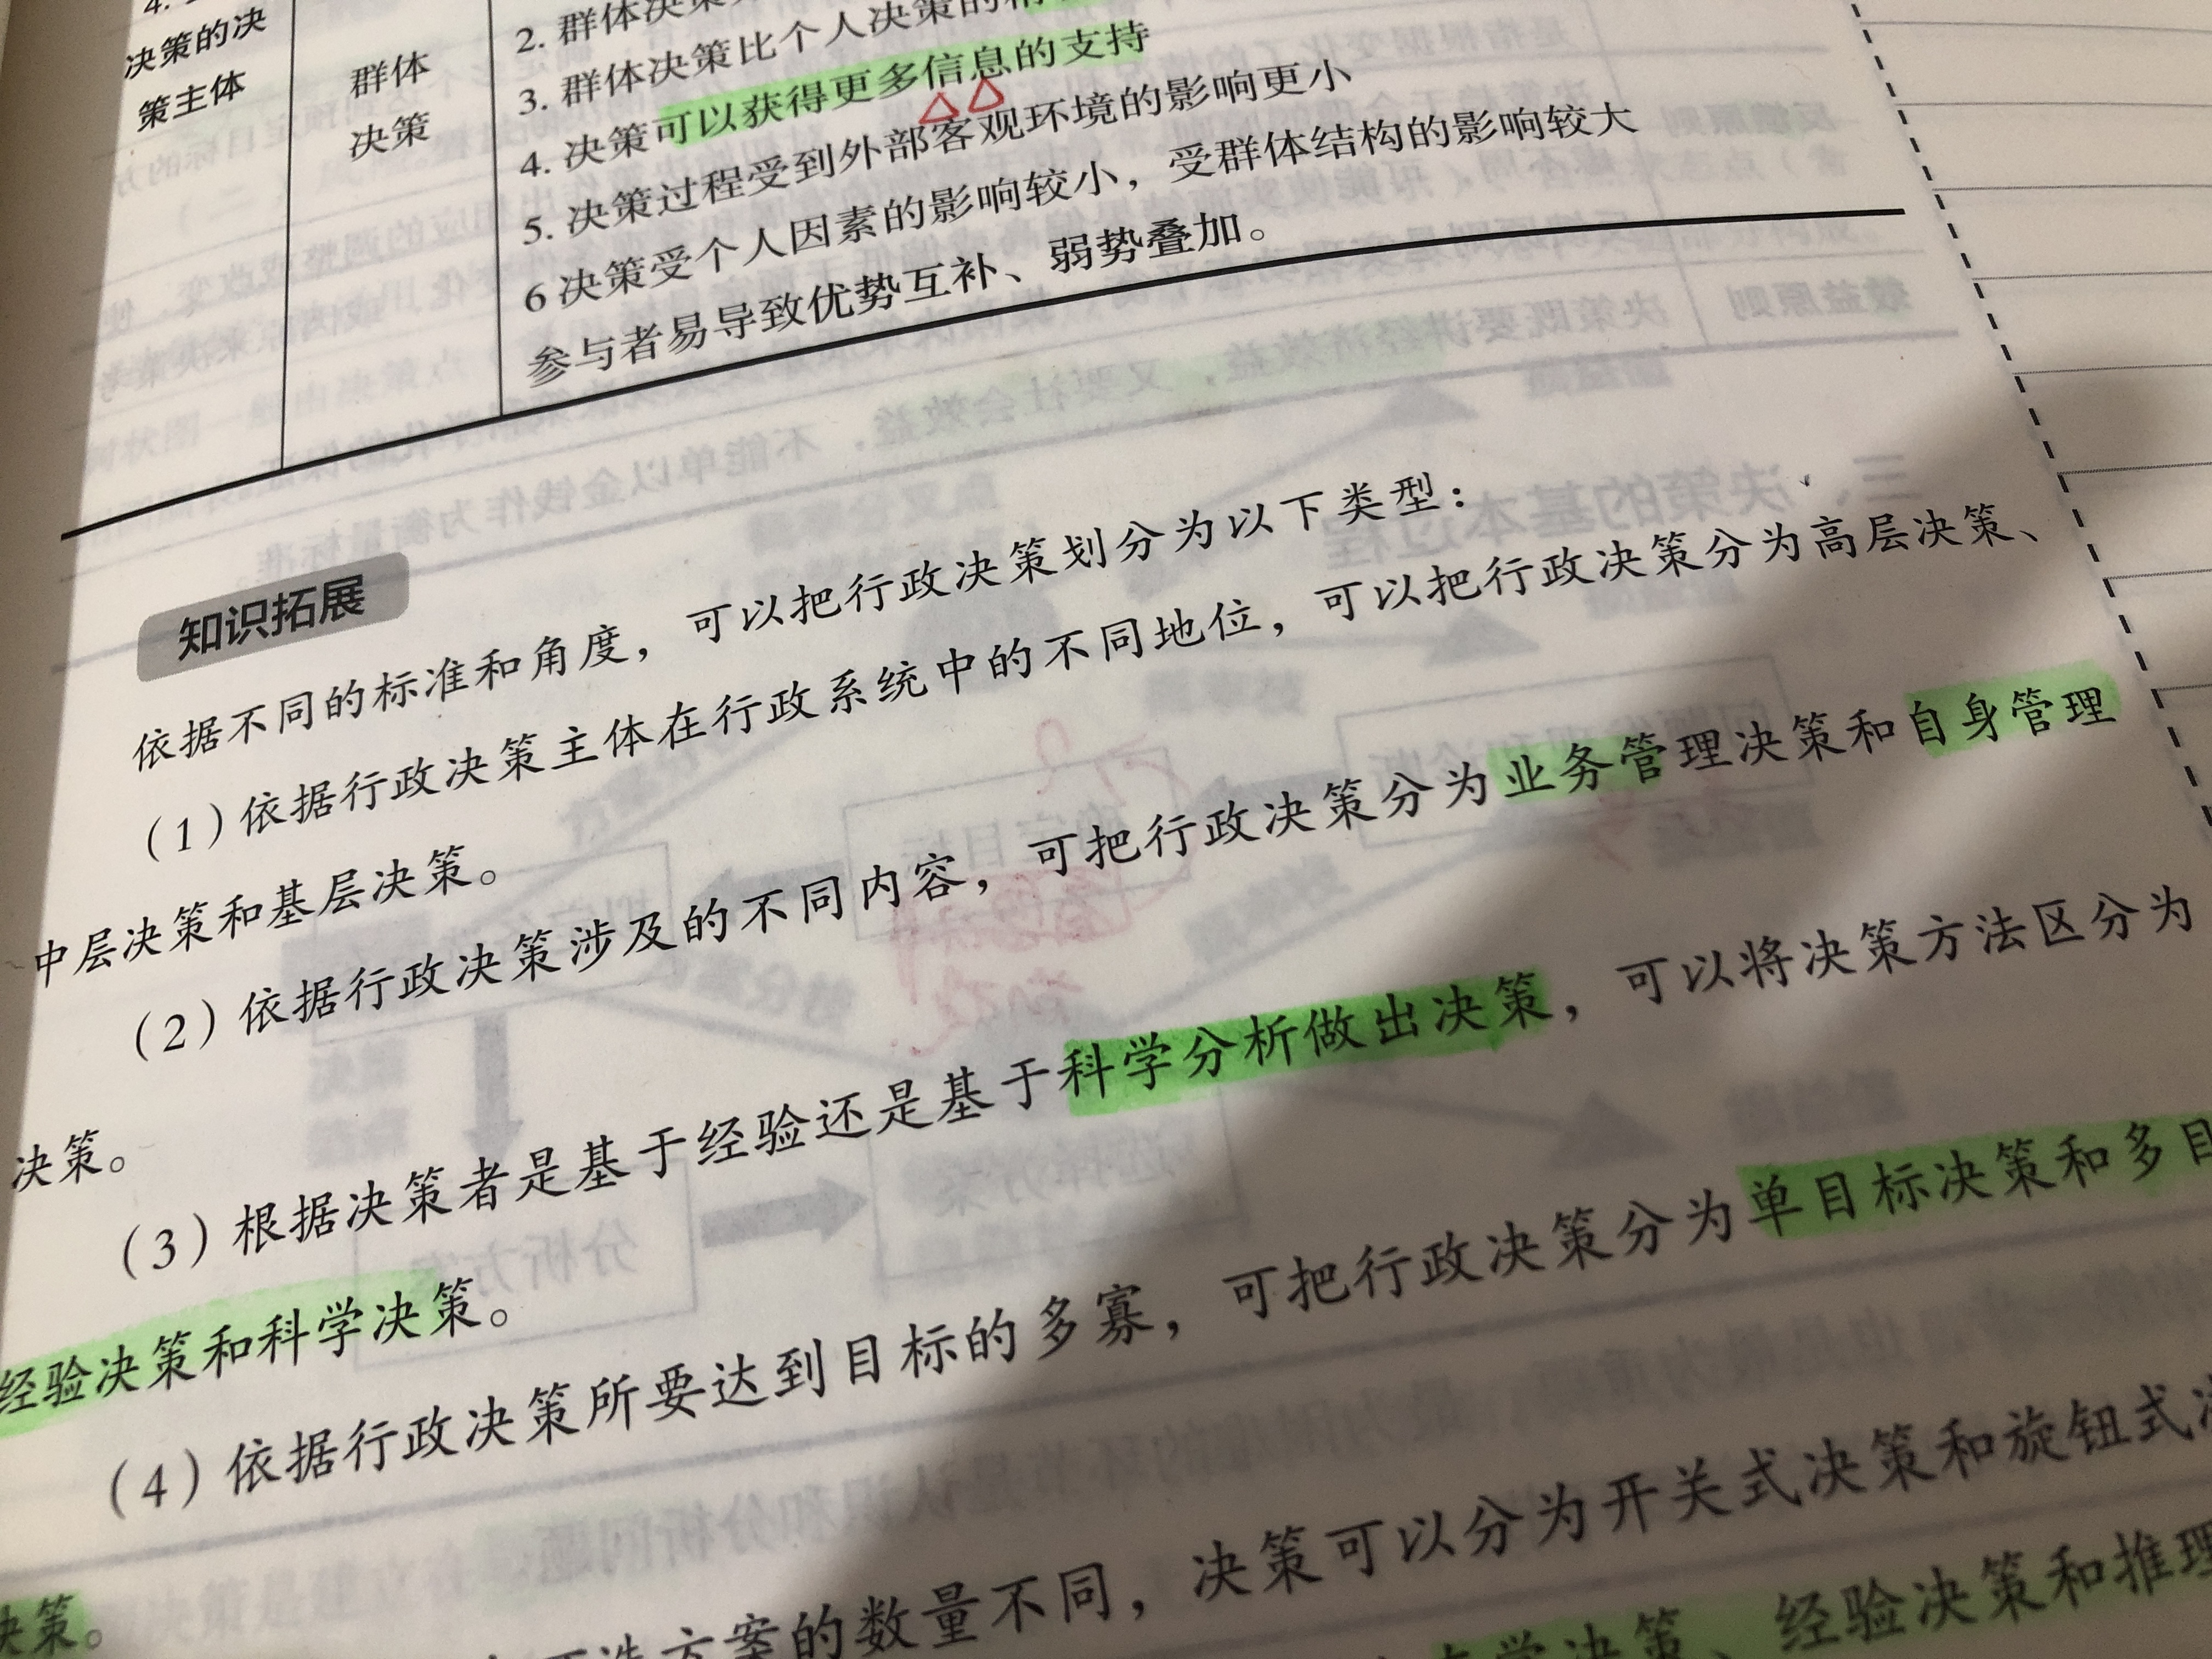 决策的决
策主体
群体
决策
2. 群体决策
3. 群体决策比个人决策的
4. 决策可以获得更多信息的支持
5. 决策过程受到外部客观环境的影响更小
6 决策受个人因素的影响较小，受群体结构的影响较大
参与者易导致优势互补、弱势叠加。
知识拓展
依据不同的标准和角度，可以把行政决策划分为以下类型：
（1）依据行政决策主体在行政系统中的不同地位，可以把行政决策分为高层决策、
中层决策和基层决策。
（2）依据行政决策涉及的不同内容，可把行政决策分为业务管理决策和自身管理
决策。
（3）根据决策者是基于经验还是基于科学分析做出决策，可以将决策方法区分为
经验决策和科学决策。
（4）依据行政决策所要达到目标的多寡，可把行政决策分为单目标决策和多目
决策。
方案的数量不同，决策可以分为开关式决策和旋钮式
学决策、经验决策和推理